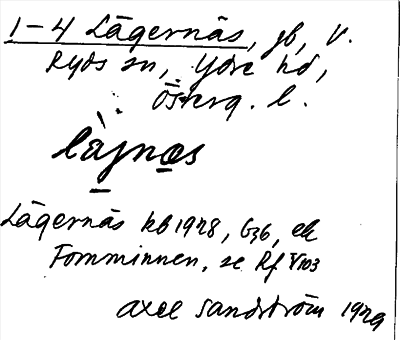 1-4 Lägernäs, gb, V.
Ryds sn, Ydre hd,
Österg. l.
làjnæs
Lägernäs kb 1928, G36, ek
Fornminnen, se Rf V103
Axel Sandström 1929